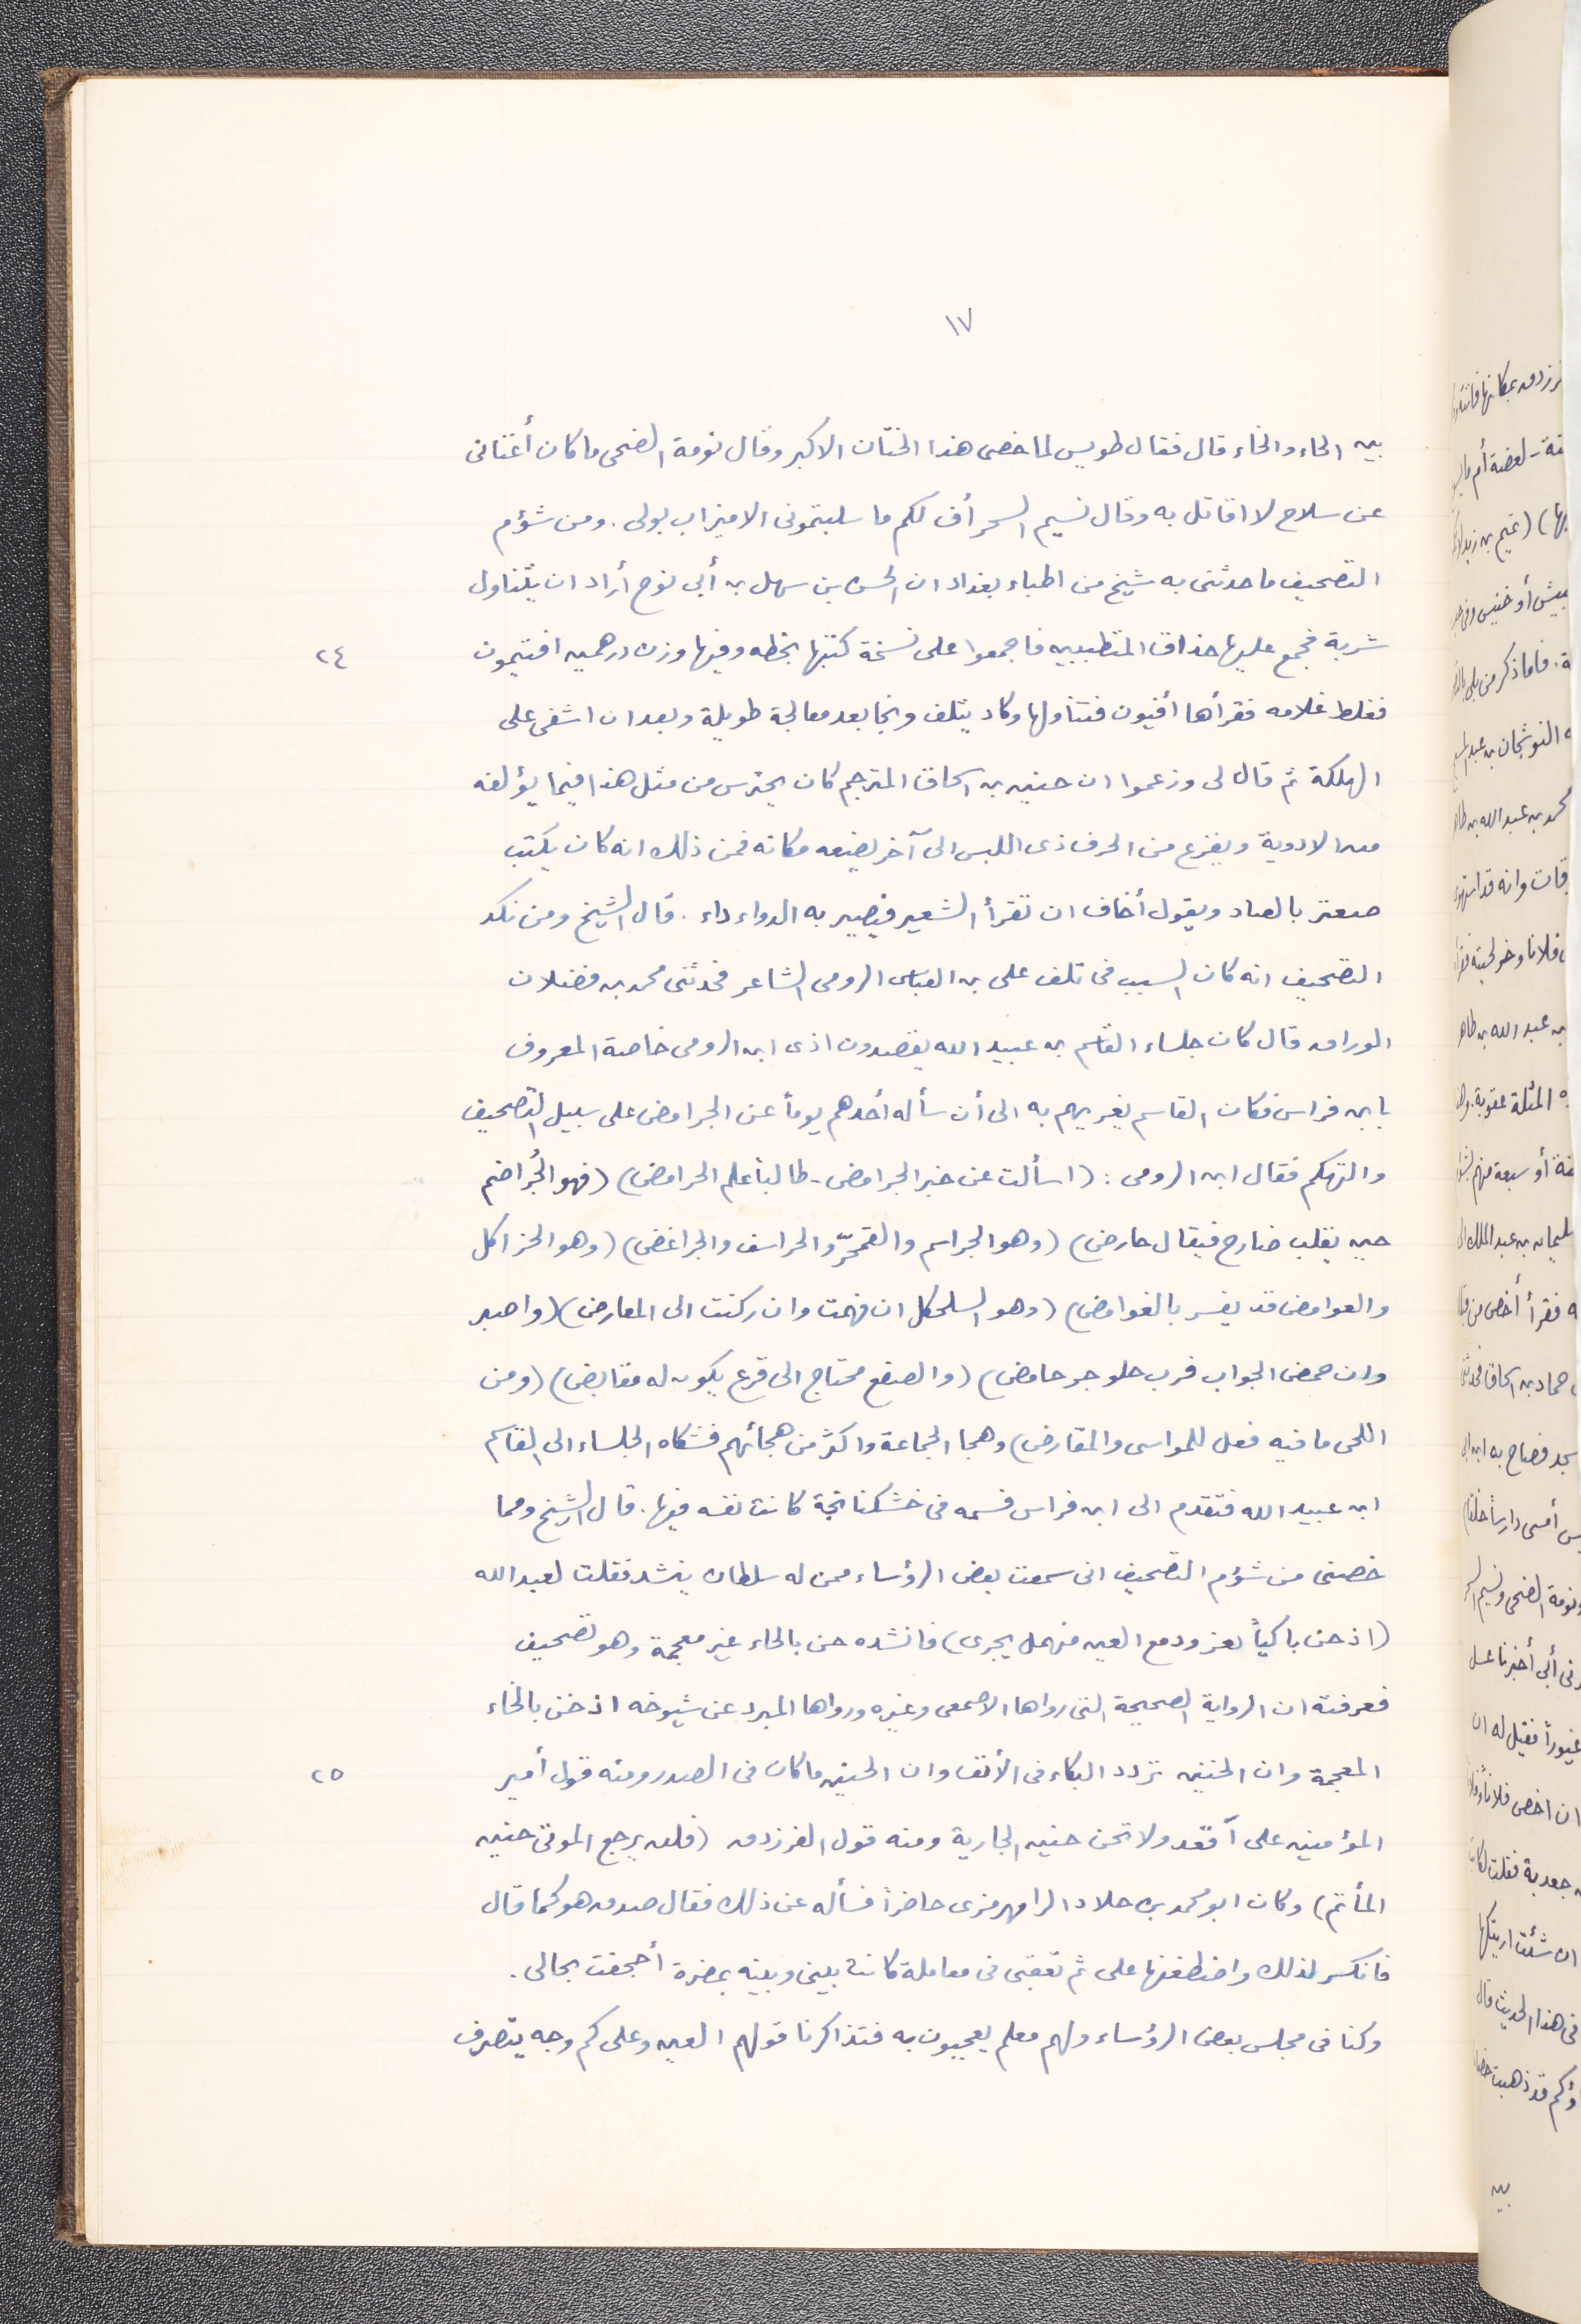 ١٧
بين الحاء والخاء قال فقال طويس لما خصى هذا الختان الاكبر وقال نومة الضحى ما كان أغنانى
عن سلاح لا اقاتل به وقال نسيم السحر أف لكم ما سلبتمونى الا ميزاب بولى . ومن شؤم
التصحيف ما حدثنى به شيخ من اطباء بغداد ان الحسن بن سهل بن أبى نوح أراد ان يتناول
شربة فجمع عليها حذاق المتطببين فاجمعوا على نسخة كتبها بخطه وفيها وزن درهمين افتيمون
٢٤
فغلط غلامه فقرأها أفيون فتناولها وكاد يتلف ونجا بعد معالجة طويلة وبعد ان اشفى على
الهلكة ثم قال لى وزعموا ان حنين بن اسحاق المترجم كان يحترس من مثل هذا فيما يؤلفه
من الادوية ويفزع من الحرف ذى اللبس الى آخر يضيفه مكانه فمن ذلك انه كان يكتب
صعتر بالصاد ويقول أخاف ان تقرأ الشعير فيصير به الدواء داء . قال الشيخ ومن نكد
التصحيف انه كان السبب فى تلف على بن العباس الرومى الشاعر فحدثنى محمد بن فضلان
الوراق قال كان جلساء القاسم بن عبيد الله يقصدون اذى ابن الرومى خاصة المعروف
بابن فراس فكان القاسم يغريهم به الى أن سأله أحدهم يوماً عن الجرامض على سبيل التصحيف
والتهكم فقال ابن الرومى : (اسألت عن خبر الجرامض - طالباً علم الحرامض) (فهو الجُراضم
حين يقلب ضارح فيقال حارض) (وهو الجراسم والقمحرّ والحراسف والجراغض) (وهو الخزاكل
والغوامض قد يفسر بالغوامض) (وهو السلحكل ان فهمت وان ركنت الى المعارض) (واصبر
وان حمض الجواب فرب حلو جر حامض) (والصفع محتاج الى قرع يكون له مقابض) (ومن
اللحى ما فيه فعل للمواسى والمقارض) وهجا الجماعة واكثر من هجائهم فشكاه الجلساء الى القاسم
ابن عبيد الله فتقدم الى ابن فراس فسمه فى خشكنانجة كانت نفسه فيها . قال الشيخ ومما
خصنى من شؤم التصحيف انى سمعت بعض الرؤساء ممن له سلطان ينشد فقلت لعبد الله
(اذ حن باكياً بعز ودمع العين منهمل يجرى) فانشده حن بالحاء غير معجمة وهو تصحيف
فعرفته ان الرواية الصحيحة التى رواها الاصمعى وغيره ورواها المبرد عن شيوخه اذ خن بالخاء
المعجمة وان الخنين تردد البكاء فى الأنف وان الحنين ما كان فى الصدر ومنه قول أمير
٢٥
المؤمنين على أقعد ولا تحن حنين الجارية ومنه قول الفرزدق (فلن يرجع الموتى حنين
المأتم) وكان ابو محمد بن خلاد الرامهرمزى حاضراً فسأله عن ذلك فقال صدق هو كما قال
فانكسر لذلك واضطغنها على ثم تعقبنى فى معاملة كانت بينى وبينه بمضرة أجحفت بحالى .
وكنا فى مجلس بعض الرؤساء ولهم معلم يعجبون به فتذاكرنا قولهم العين وعلى كم وجه يتصرف